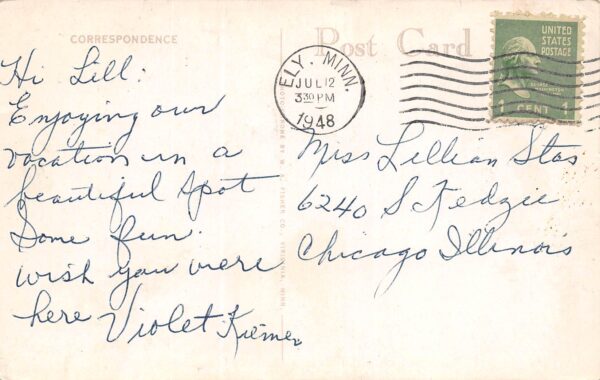 CORRESPONDENCE
Post Card
Hi Lill:
Enjoying our
vacation in a
beautiful spot
Some fun.
wish you were
here Violet Kiemer
ELY, MINN.
JUL 12
3 30 PM
1948
UNITED
STATES
POSTAGE
WASHINGTON
1 CENT 1
Miss Lillian Stas
6240 S Kedzie
Chicago Illinois